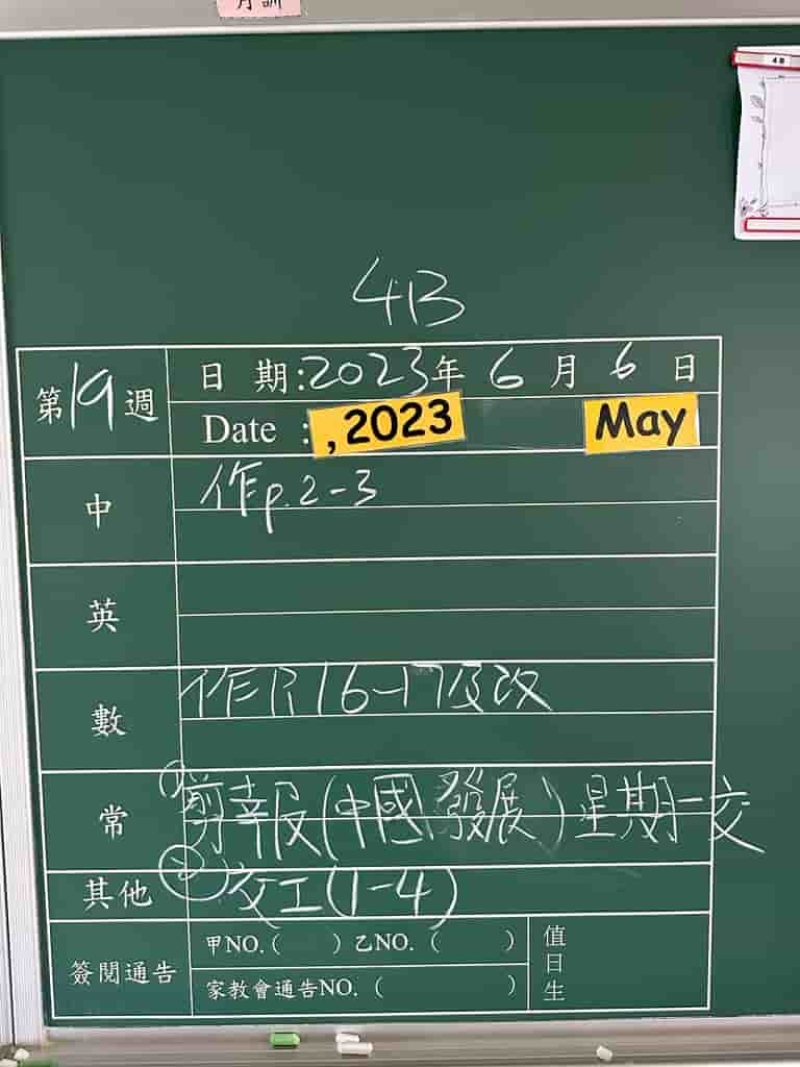 月訓
4B
4B
第19週
日 期:2023年 6 月 6 日
Date : , 2023 May
中
作p.2-3
英
數
作P.16-17及改
常
①剪報(中國發展)星期一交
其他
②交工(1-4)
簽閱通告
甲NO.( ) 乙NO.( )
家教會通告NO.( )
值日生